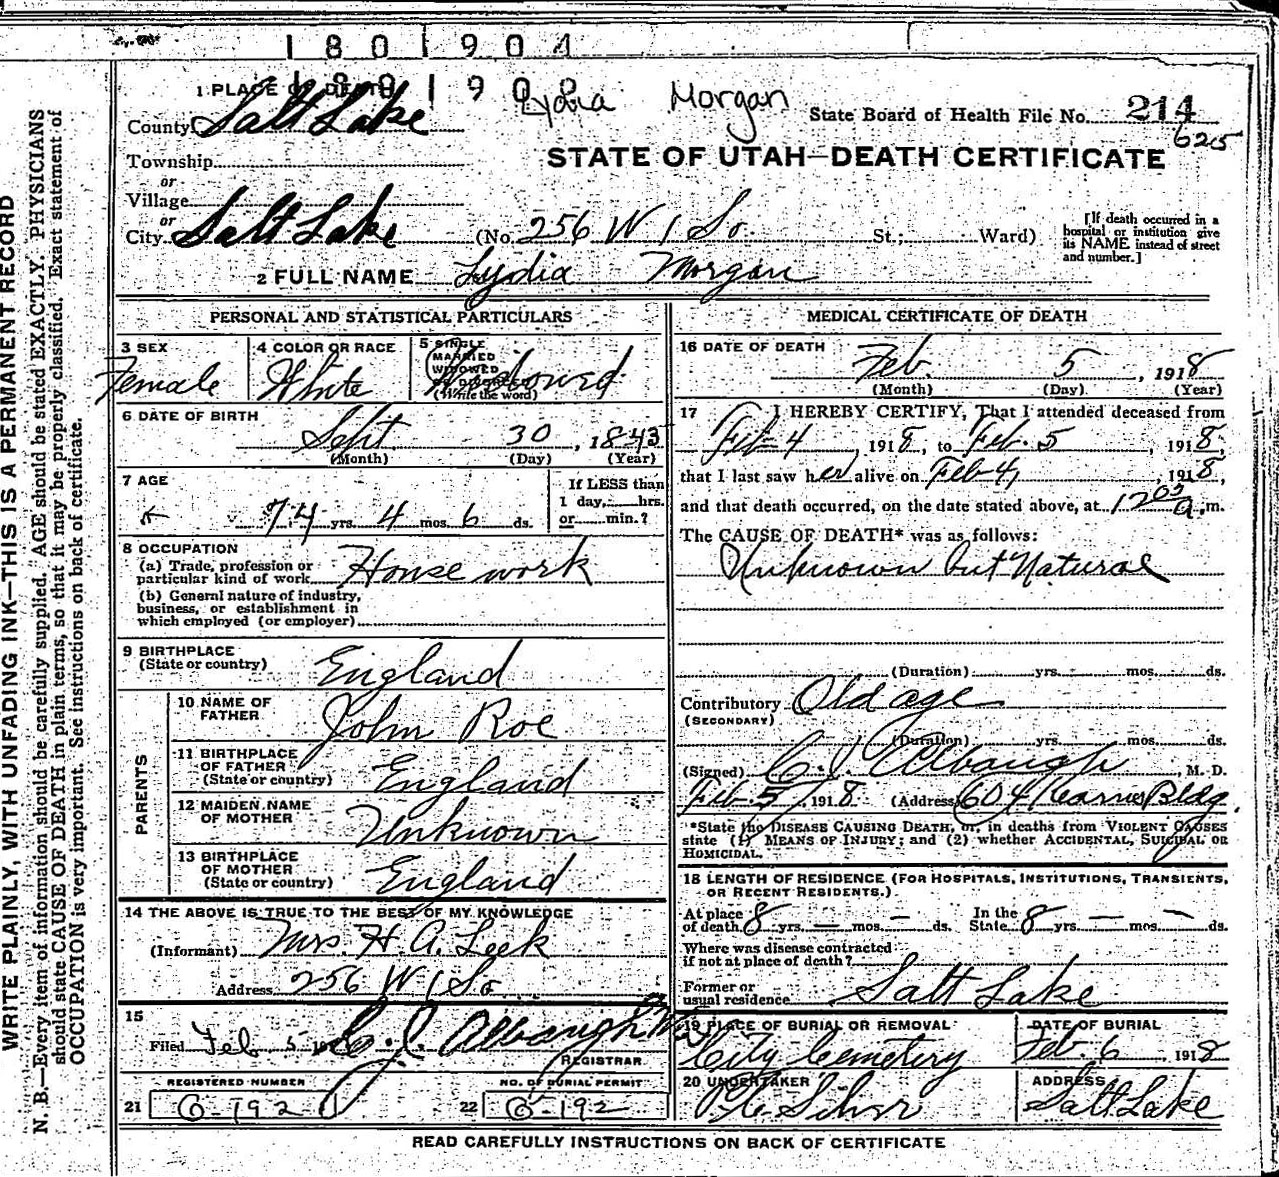 1801904
1801904
Lydia Morgan
1 PLACE OF DEATH
State Board of Health File No. 214
625
County Salt Lake
STATE OF UTAH—DEATH CERTIFICATE
Township
or
Village
or
City Salt Lake (No. 256 W 1 So. St.; Ward)
[If death occurred in a hospital or institution give its NAME instead of street and number.]
2 FULL NAME Lydia Morgan
PERSONAL AND STATISTICAL PARTICULARS
3 SEX
Female
4 COLOR OR RACE
White
5 SINGLE
MARRIED
WIDOWED
OR DIVORCED
(Write the word)
Widowed
6 DATE OF BIRTH
Sept 30, 1843
(Month) (Day) (Year)
7 AGE
74 yrs. 4 mos. 6 ds.
If LESS than
1 day, hrs.
or min.?
8 OCCUPATION
(a) Trade, profession or
particular kind of work House work
(b) General nature of industry,
business, or establishment in
which employed (or employer)
9 BIRTHPLACE
(State or country) England
PARENTS
10 NAME OF
FATHER John Roe
11 BIRTHPLACE
OF FATHER
(State or country) England
12 MAIDEN NAME
OF MOTHER Unknown
13 BIRTHPLACE
OF MOTHER
(State or country) England
14 THE ABOVE IS TRUE TO THE BEST OF MY KNOWLEDGE
(Informant) Mrs. H. A. Leek
Address 256 W 1 So
15
Filed Feb 5 191 C. J. Albaugh
REGISTRAR
REGISTERED NUMBER
21 G-192
NO. OF BURIAL PERMIT
22 G-192
MEDICAL CERTIFICATE OF DEATH
16 DATE OF DEATH
Feb. 5, 1918
(Month) (Day) (Year)
17 I HEREBY CERTIFY, That I attended deceased from
Feb-4, 1918, to Feb. 5, 1918,
that I last saw her alive on Feb-4, 1918,
and that death occurred, on the date stated above, at 12 05 a. m.
The CAUSE OF DEATH* was as follows:
Unknown but Natural
(Duration) yrs. mos. ds.
Contributory Old age
(SECONDARY)
(Duration) yrs. mos. ds.
(Signed) C. J. Albaugh, M. D.
Feb. 5, 1918 (Address) 604 Kearns Bldg.
*State the DISEASE CAUSING DEATH, or, in deaths from VIOLENT CAUSES
state (1) MEANS OF INJURY; and (2) whether ACCIDENTAL, SUICIDAL OR
HOMICIDAL.
18 LENGTH OF RESIDENCE (FOR HOSPITALS, INSTITUTIONS, TRANSIENTS,
OR RECENT RESIDENTS.)
At place
of death 8 yrs. — mos. — ds.
In the
State 8 yrs. — mos. — ds.
Where was disease contracted
if not at place of death?
Former or
usual residence Salt Lake
19 PLACE OF BURIAL OR REMOVAL
City Cemetery
DATE OF BURIAL
Feb. 6, 1918
20 UNDERTAKER
ADDRESS
Salt Lake
READ CAREFULLY INSTRUCTIONS ON BACK OF CERTIFICATE
WRITE PLAINLY, WITH UNFADING INK—THIS IS A PERMANENT RECORD
N. B.—Every item of information should be carefully supplied. AGE should be stated EXACTLY. PHYSICIANS
should state CAUSE OF DEATH in plain terms, so that it may be properly classified. Exact statement of
OCCUPATION is very important. See instructions on back of certificate.